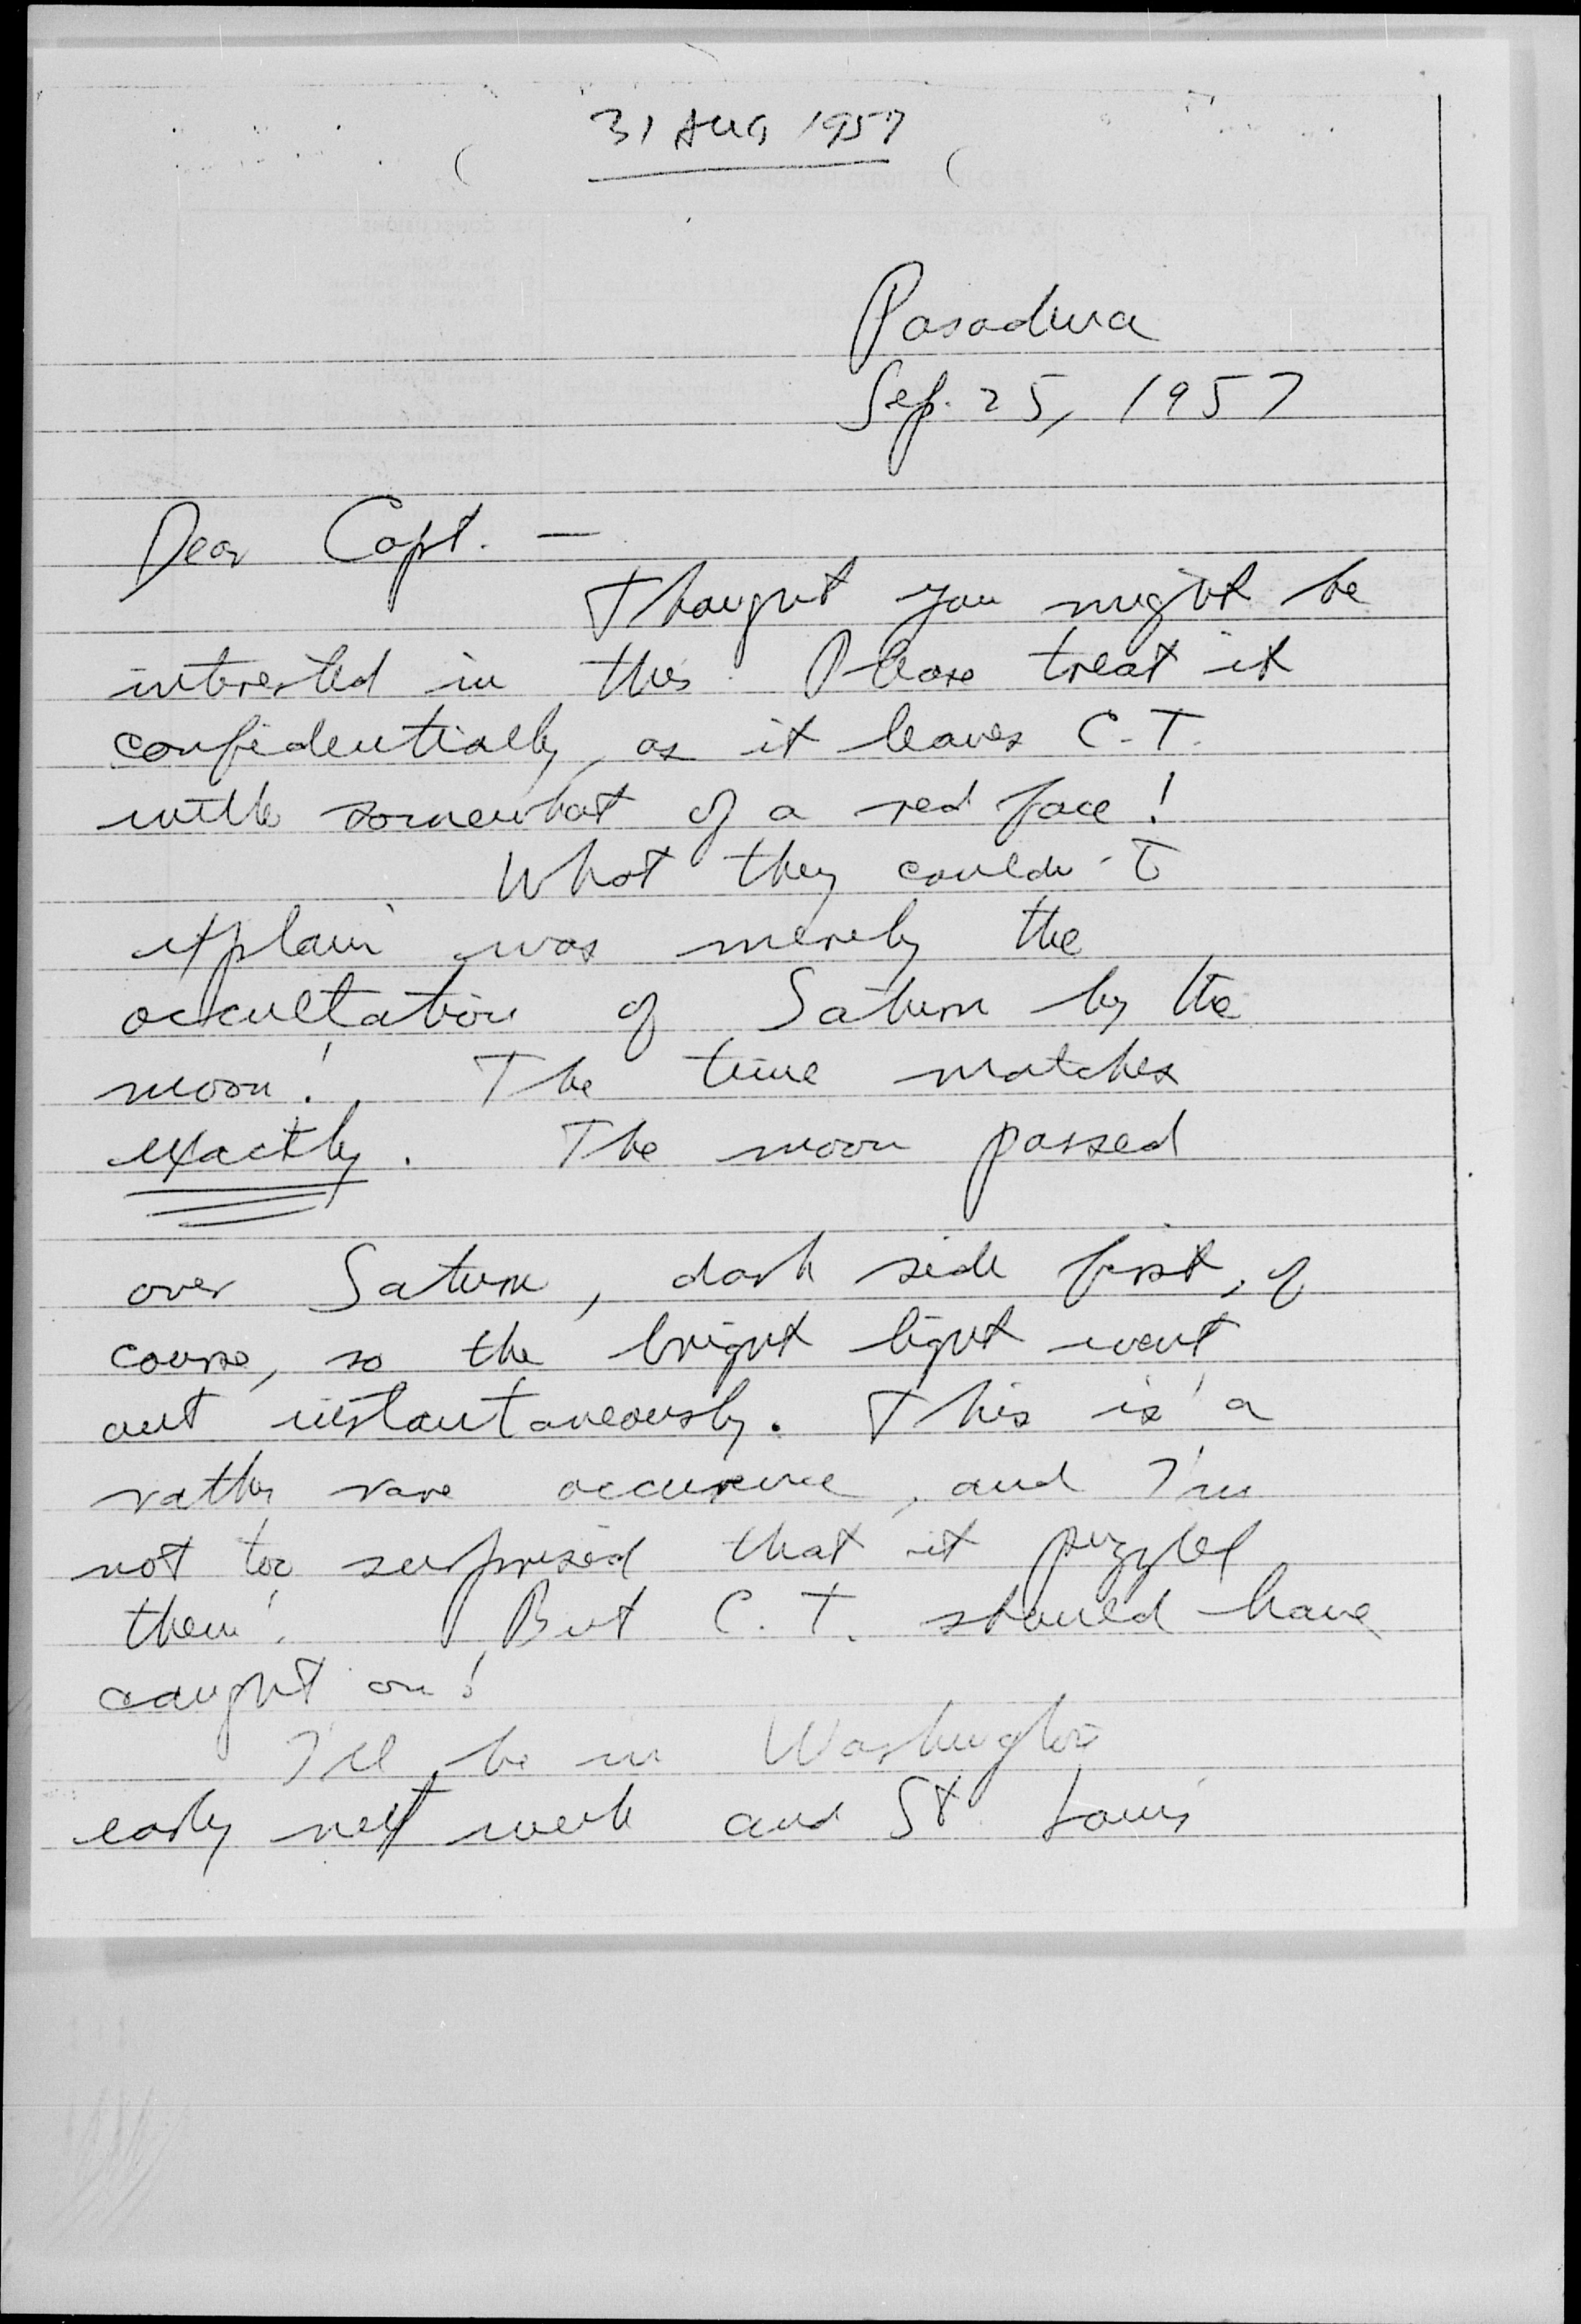 31 AUG 1957
Pasadena
Sep. 25, 1957
Dear Capt. —
Thought you might be
interested in this. Please treat it
confidentially, as it leaves C.T.
with somewhat of a red face!
What they couldn't
explain was merely the
occultation of Saturn by the
moon! The time matches
exactly. The moon passed
over Saturn, dark side first, of
course, so the bright light went
out instantaneously. This is a
rather rare occurence, and I'm
not too surprised that it puzzled
them! But C.T. should have
caught on!
I'll be in Washington
early next week and St. Louis